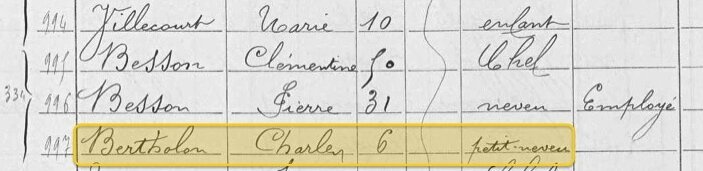 994 Villecourt Marie 10 enfant
995 Besson Clémentine 50 Chef
334
996 Besson Pierre 31 neveu Employé
997 Bertholon Charles 6 petit-neveu